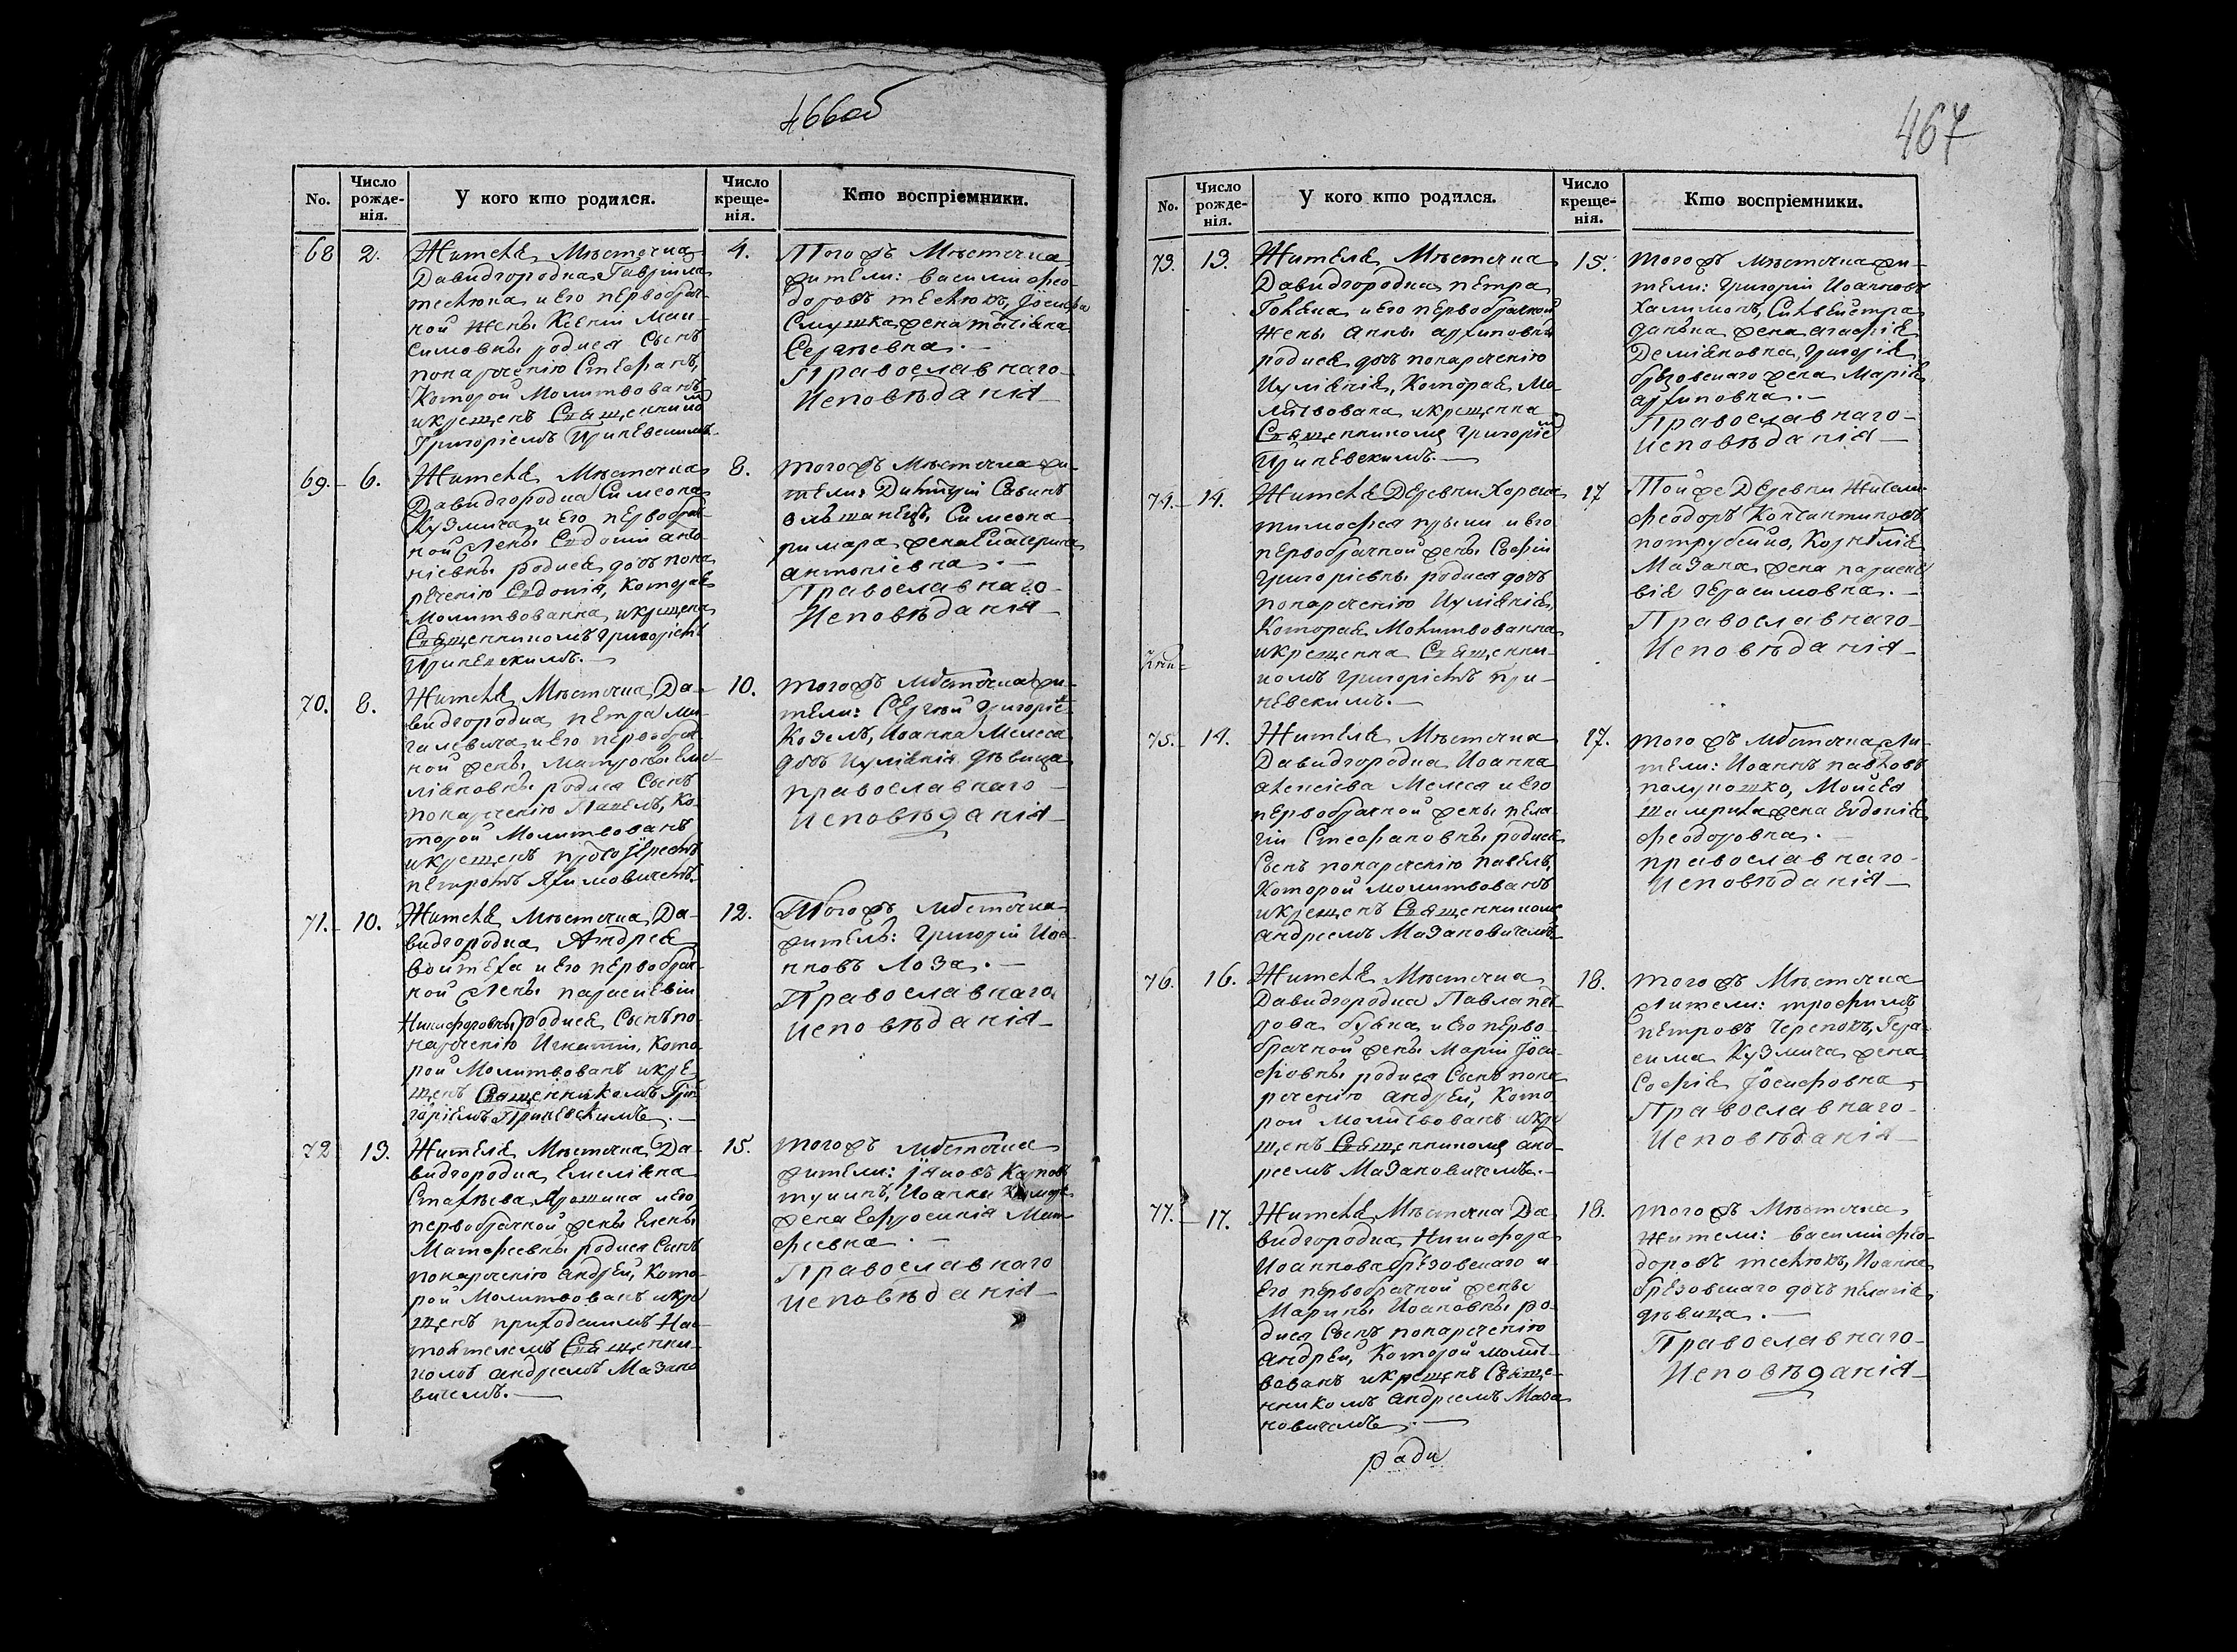 466об
No.
Число рожде-нія.
У кого кто родился.
Число креще-нія.
Кто воспріемники.
68
2.
Жителя Мѣстечка
Давидгородка Гавріила
теслюка и его первобрач-
ной жены Ксеніи Мак-
симовны родися Сынъ
понаречению Стефанъ,
Которой Молитвованъ
икрещенъ Священником
Григоріемъ Приневскимъ
4.
Тогожъ Мѣстечка
жители: василій фео-
доровъ теслюкъ, Іосифа
Смушка жена татіана
Сергѣевна. —
Православнаго
Исповѣданія
69.
6.
Жителя Мѣстечка
Давидгородка Симеона
Кузмича и его первобрач-
ной жены Евдокіи анто-
ніевны родися дочь пона
речению Евдокія, Которая
Молитвованна икрещена
Священникомъ григоріемъ
Приневскимъ. —
8.
тогожъ Мѣстечка жи-
тели: Димитрій Саввинъ
ольшанецъ, Симеона
римара жена Екатерина
антоніевна. —
Православнаго
Исповѣданія
70.
8.
Жителя Мѣстечка Да-
видгородка петра Ми-
галевича и его первобрач-
ной жены Матроны Еме-
ліановны родися Сынъ
понаречению Павелъ, Ко-
торой Молитвованъ
икрещенъ протоіереемъ
петромъ Якимовичемъ.
10.
тогожъ мѣстечка жи-
тели: Сергѣй григоріев
Козелъ, Иоанна Мелеса
дочь Иуліанія дѣвица
православнаго
Исповѣданія
71.
10.
Жителя Мѣстечка Да-
видгородка Андрея
войтеха и его первобрач-
ной жены параскевіи
Никифоровны родися Сынъ по-
наречению Игнатій, Кото-
рой Молитвованъ икре-
щенъ Священникомъ Гри-
горіемъ Приневскимъ. —
12.
Тогожъ мѣстечка
житель: Григорій Иоа-
нновъ Лоза. —
Православнаго
Исповѣданія
72
13.
Жителя Мѣстечка Да-
видгородка Емеліана
Стахѣева Ярошика и его
первобрачной жены Елены
Матфеевны родися Сынъ
понаречению андрей, Кото-
рой Молитвованъ икре
щенъ приходскимъ Нас-
тоятелемъ Священни-
комъ андреемъ Мазано
вичемъ. —
15.
тогожъ мѣстечка
жители: Карповъ
Иоанна
жена Ефросинія Мат-
феевна. —
Православнаго
Исповѣданія
467
No.
Число рожде-нія.
У кого кто родился.
Число креще-нія.
Кто воспріемники.
73.
13.
Жителя Мѣстечка
Давидгородка петра
Гокена и его первобрачной
жены Анны архиповны
родися дочь понаречению
Иуліанія, Которая Мо-
литвована икрещенна
Священникомъ григоріем
Приневскимъ. —
15.
тогожъ мѣстечка жи-
тели: григорій Иоанновъ
Халимонъ, Силвестра
жена агафія
Деміановна, григорія
брезовскаго жена Марія
архиповна. —
Православнаго
Исповѣданія
74.
14.
Жителя Деревни Хорска
тимофея и его
первобрачной жены Софіи
григоріевны родися дочь
понаречению Иуліанія,
Которая Молитвованна
икрещенна Священни-
комъ григоріемъ при-
невскимъ. —
17
Тойже Деревни Жители
феодоръ Константиновъ
Корнилія
Мазана жена параске
вія герасимовна. —
Православнаго
Исповѣданія
75.
14.
Жителя Мѣстечка
Давидгородка Иоанна
алексіева Мелеса и его
первобрачной жены пела-
гіи Стефановны родися
Сынъ понаречению павелъ,
Которой молитвованъ
икрещенъ Священником
андреемъ Мазановичемъ
17.
тогожъ мѣстечка Жи-
тели: Иоаннъ павловъ
полуношко, Мойсея
шамрила жена Евдокія
феодоровна. —
православнаго
Исповѣданія
76.
16.
Жителя Мѣстечка
Давидгородка Павла пет-
рова бубна и его перво-
брачной жены Маріи Іоси-
фовны родися Сынъ пона
речению андрей, Кото
рой молитвованъ икре
щенъ Священником анд-
реемъ Мазановичемъ. —
18.
тогожъ Мѣстечка
Жители: трофимъ
петровъ черепокъ, Гера-
сима Кузмича жена
Софія Іосифовна
Православнаго
Исповѣданія
77.
17.
Жителя Мѣстечка Да
видгородка Никифора
Иоаннова брезовскаго и
его первобрачной жены
Марины Иоановны ро-
дися Сынъ понаречению
андрей, Которой молит-
вованъ икрещенъ Священ-
никомъ андреемъ Маза
новичемъ. —
18.
тогожъ Мѣстечка
жители: василій фео-
доровъ теслюкъ, Иоанна
брезовскаго дочь пелагія
дѣвица. —
Православнаго
Исповѣданія